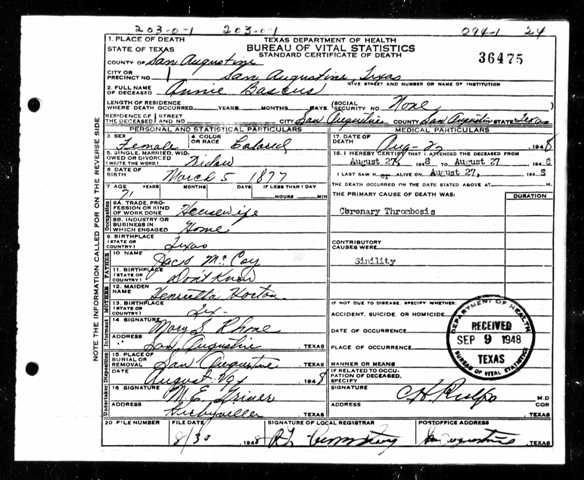 203-0-1 203-0-1 094-1 24
1. PLACE OF DEATH
STATE OF TEXAS
TEXAS DEPARTMENT OF HEALTH
BUREAU OF VITAL STATISTICS
STANDARD CERTIFICATE OF DEATH
36475
COUNTY OF San Augustine
CITY OR PRECINCT NO. 1 San Augustine, Texas
GIVE STREET AND NUMBER OR NAME OF INSTITUTION
2. FULL NAME OF DECEASED Annie Bascus
LENGTH OF RESIDENCE WHERE DEATH OCCURRED YEARS MONTHS DAYS (SOCIAL SECURITY NO. None
RESIDENCE OF THE DECEASED STREET AND NO. CITY San Augustine COUNTY San Augustin STATE Texas
PERSONAL AND STATISTICAL PARTICULARS
3. SEX Female
4. COLOR OR RACE Colored
5. SINGLE, MARRIED, WIDOWED OR DIVORCED (WRITE THE WORD) Widow
6. DATE OF BIRTH March 5 1877
7. AGE YEARS MONTHS DAYS IF LESS THAN 1 DAY
71 HOURS MIN
8A. TRADE, PROFESSION OR KIND OF WORK DONE Housewife
8B. INDUSTRY OR BUSINESS IN WHICH ENGAGED Home
9. BIRTHPLACE (STATE OR COUNTRY) Texas
FATHER
10. NAME McCoy
11. BIRTHPLACE (STATE OR COUNTRY) Dont Know
MOTHER
12. MAIDEN NAME Henrietta Horton
13. BIRTHPLACE (STATE OR COUNTRY)
Informant
14. SIGNATURE Mary S. Rhone
ADDRESS San Augustine, TEXAS
15. PLACE OF BURIAL OR REMOVAL San Augustine, TEXAS
DATE August 1948
16. SIGNATURE M. E. Griner
ADDRESS Kirbyville TEXAS
MEDICAL PARTICULARS
17. DATE OF DEATH Aug- 27 1948
18. I HEREBY CERTIFY THAT I ATTENDED THE DECEASED FROM
August 27, 1948 TO August 27 1948
I LAST SAW H ALIVE ON August 27, 1948
THE DEATH OCCURRED ON THE DATE STATED ABOVE AT M.
THE PRIMARY CAUSE OF DEATH WAS: DURATION
Coronary Thrombosis
CONTRIBUTORY CAUSES WERE:
Sinility
IF NOT DUE TO DISEASE, SPECIFY WHETHER:
ACCIDENT, SUICIDE OR HOMICIDE
DATE OF OCCURRENCE
PLACE OF OCCURRENCE
MANNER OR MEANS
IF RELATED TO OCCUPATION OF DECEASED, SPECIFY
SIGNATURE M.D.
COR
ADDRESS TEXAS
DEPARTMENT OF HEALTH
RECEIVED
SEP 9 1948
TEXAS
BUREAU OF VITAL STATISTICS
20 FILE NUMBER
FILE DATE 8/30 1948
SIGNATURE OF LOCAL REGISTRAR
POSTOFFICE ADDRESS San Augustine TEXAS
NOTE THE INFORMATION CALLED FOR ON THE REVERSE SIDE